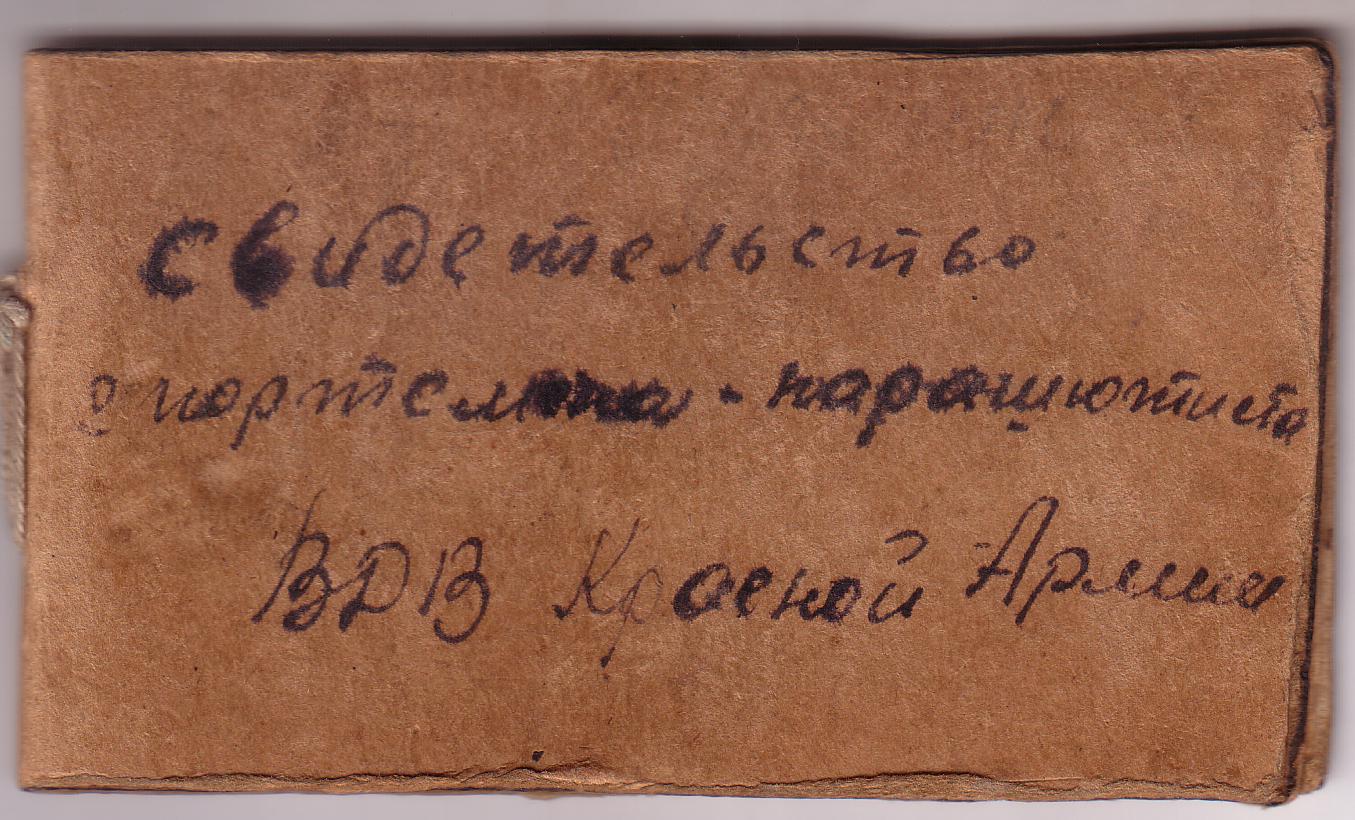 свидетельство
спортсмена-парашютиста
ВДВ Красной Армии